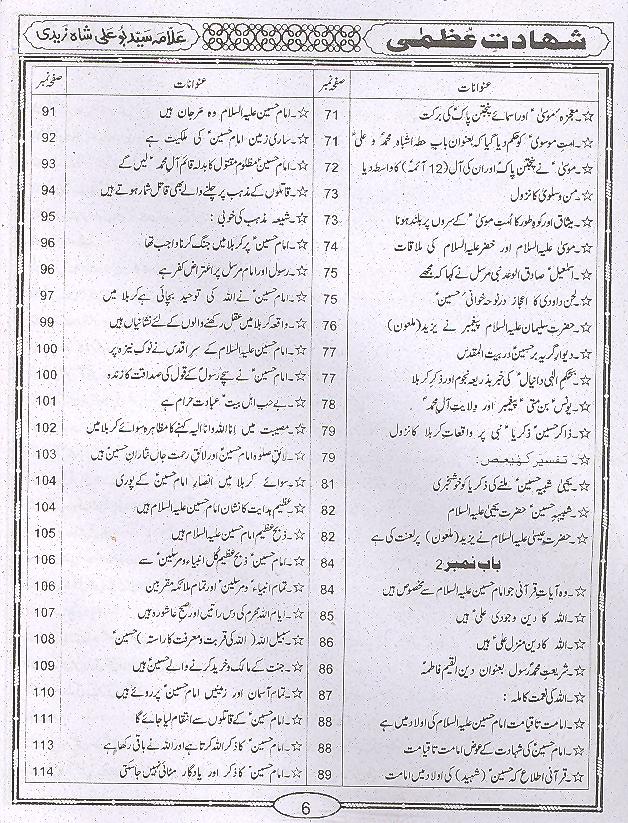 شہادتِ عُظمٰی
علامہ سید بو علی شاہ زیدی
عنوانات صفحہ نمبر
☆۔معجزہ موسیٰؑ اور اسمائے پنجتن پاکؑ کی برکت 71
☆۔امتِ موسوی کو حکم دیا گیا کہ بعنوان باب حطہ اشباہ محمدؐ و علیؑ 71
☆۔موسیٰؑ نے پنجتن پاکؑ اور ان کی آل (12 آئمہؑ) کا واسطہ دیا 72
☆۔من و سلویٰ کا نزول 73
☆۔میثاق اور کوہ طور کا اُمتِ موسیٰؑ کے سروں پر بلند ہونا 73
☆۔موسیٰ علیہ السلام اور خضر علیہ السلام کی ملاقات 74
☆۔اسمٰعیل صادق الوعد نبی مرسل نے کہا کہ مجھے 75
☆۔لحن داودی کا اعجاز در نوحہ خوانی حسینؑ 75
☆۔حضرت سلیمان علیہ السلام پیغمبر نے یزید (ملعون) 76
☆۔دیوارِ گریہ بر حسینؑ در بیت المقدس 77
☆۔بحکم الٰہی دانیالؑ کی خبر بذریعہ نجوم اور ذکرِ کربلا 77
☆۔یونسؑ بن متیٰؑ پیغمبر اور ولایتِ آلِ محمدؐ 78
☆۔ذاکر حسینؑ ذکریاؑ نبی پر واقعاتِ کربلا کا نزول 79
☆۔تفسیر کٓھٰیٰعٓصٓ: 79
☆۔یحیٰی شبیہِ حسینؑ ملنے کی ذکریا کو خوشخبری 81
☆۔شبیہِ حسینؑ حضرت یحیٰی علیہ السلام 82
☆۔حضرت عیسیٰ علیہ السلام نے یزید (ملعون) پر لعنت کی ہے 82
باب نمبر 2
☆۔وہ آیات قرآنی جو امام حسین علیہ السلام سے مخصوص ہیں 84
☆۔اللہ کا دین وجودی علیؑ ہیں 85
☆۔اللہ کا دین منزل علیؑ ہیں 86
☆۔شریعتِ محمدؐ رسول بعنوان دین القیم فاطمہؑ 86
☆۔اللہ کی نعمت کاملہ: 87
☆۔امامت تا قیامت امام حسین علیہ السلام کی اولاد میں ہے 88
☆۔امام حسینؑ کی شہادت کے عوض امامت تا قیامت 88
☆۔قرآنی اطلاع کہ حسینؑ (شہید) کی اولاد میں امامت 89
عنوانات صفحہ نمبر
☆۔امام حسین علیہ السلام وہ مرجان ہیں 91
☆۔ساری زمین امام حسینؑ کی ملکیت ہے 92
☆۔امام حسینؑ مظلوم مقتول کا بدلہ قائم آلِ محمدؐ لیں گے 93
☆۔قاتلوں کے مذہب پر چلنے والے بھی قاتل شمار ہوتے ہیں 94
☆۔شیعہ مذہب کی خوبی: 95
☆۔امام حسینؑ پر کربلا میں جنگ کرنا واجب تھا 96
☆۔رسول اور امام مرسل پر اعتراض کفر ہے 96
☆۔امام حسینؑ نے اللہ کی توحید بچائی ہے کربلا میں 97
☆۔واقعہ کربلا میں عقل رکھنے والوں کے لئے نشانیاں ہیں 99
☆۔امام حسین علیہ السلام کے سرِ اقدس نے نوکِ نیزہ پر 100
☆۔امام حسینؑ نے سچے رسولؐ کے قول کی صداقت کا زندہ 100
☆۔بے حب اہل بیتؑ عبادت حرام ہے 101
☆۔مصیبت میں انا للہ وانا الیہ کہنے کا مظاہرہ سوائے کربلا میں 102
☆۔لائقِ صلوٰہ امام حسینؑ اور لائقِ رحمت جاں نثارانِ حسینؑ ہیں 103
☆۔سوائے کربلا میں انصارِ امام حسینؑ کے پوری 104
☆۔عظیم ہدایت کا نشان امام حسین علیہ السلام ہیں 104
☆۔ذبح عظیم امام حسین علیہ السلام ہیں 105
☆۔امام حسینؑ ذبح عظیم کل انبیاءؑ و مرسلینؑ سے 106
☆۔تمام انبیاءؑ و مرسلینؑ اور تمام ملائکہ مقربین 106
☆۔ایام اللہ محرم کی دس راتیں اور صبح عاشورہ ہیں 107
☆۔سبیل اللہ (اللہ کی قربت و معرفت کا راستہ) حسینؑ 108
☆۔جنت کے مالک و خرید کرنے والے حسینؑ ہیں 109
☆۔تمام آسمان اور زمینیں امام حسینؑ پر روئے ہیں 110
☆۔امام حسینؑ کے قاتلوں سے انتقام لیا جائے گا 111
☆۔امام حسینؑ کا ذکر اللہ کرتا ہے اور اللہ نے باقی رکھا ہے 113
☆۔امام حسینؑ کا ذکر اور یادگار مٹائی نہیں جا سکتی 114
6